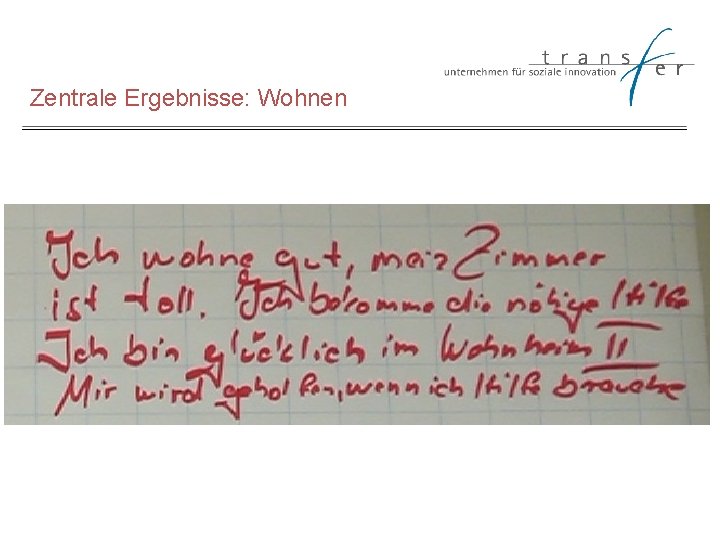 transfer
unternehmen für soziale innovation
Zentrale Ergebnisse: Wohnen
Ich wohne gut, mein Zimmer
ist toll. Ich bekomme die nötige Hilfe
Ich bin glücklich im Wohnheim II
Mir wird geholfen, wenn ich Hilfe brauche